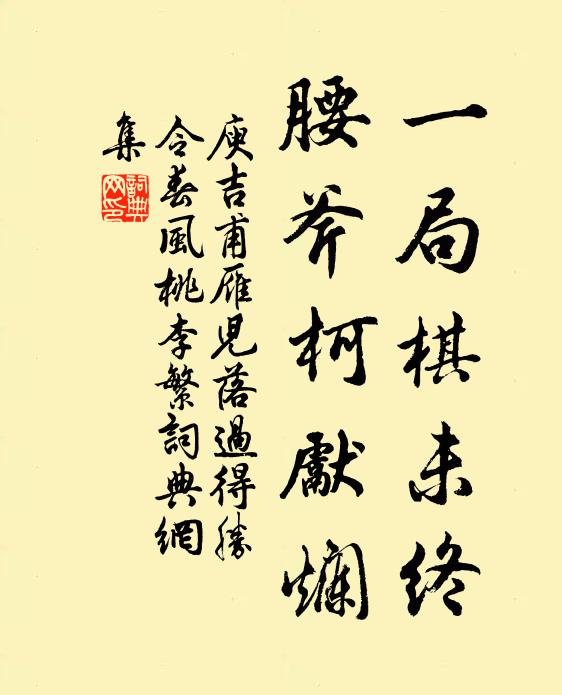 一局棋未終
腰斧柯獻爛
庾吉甫雁兒落過得勝
令春風桃李繁詞典網
集
詞典
网印